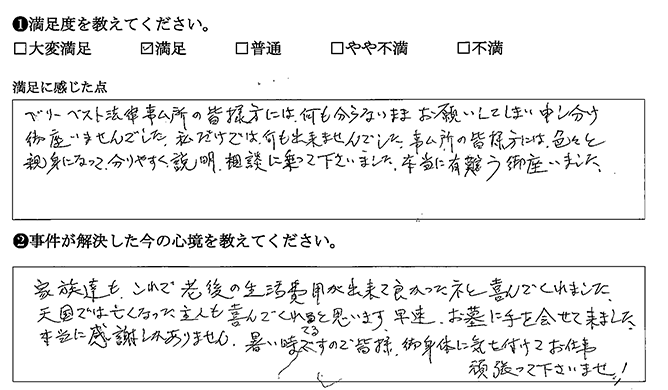 ❶満足度を教えてください。
□大変満足 ☑満足 □普通 □やや不満 □不満
満足に感じた点
ベリーベスト法律事ム所の皆様方には、何も分らないまま お願いしてしまい 申し分け
御座いませんでした。私だけでは、何も出来ませんでした。事ム所の皆様方には、色々と
親身になって、分りやすく、説明、相談に乗って下さいました。本当に有難う御座いました。
❷事件が解決した今の心境を教えてください。
家族達も、これで老後の生活費用が出来て良かったネと喜んでくれました。
天国では亡くなった主人も喜んでくれてると思います。早速、お墓に手を合せて来ました。
本当に感謝しかありません。暑い時ですので皆様、御身体に気を付けてお仕事
頑張って下さいませ!